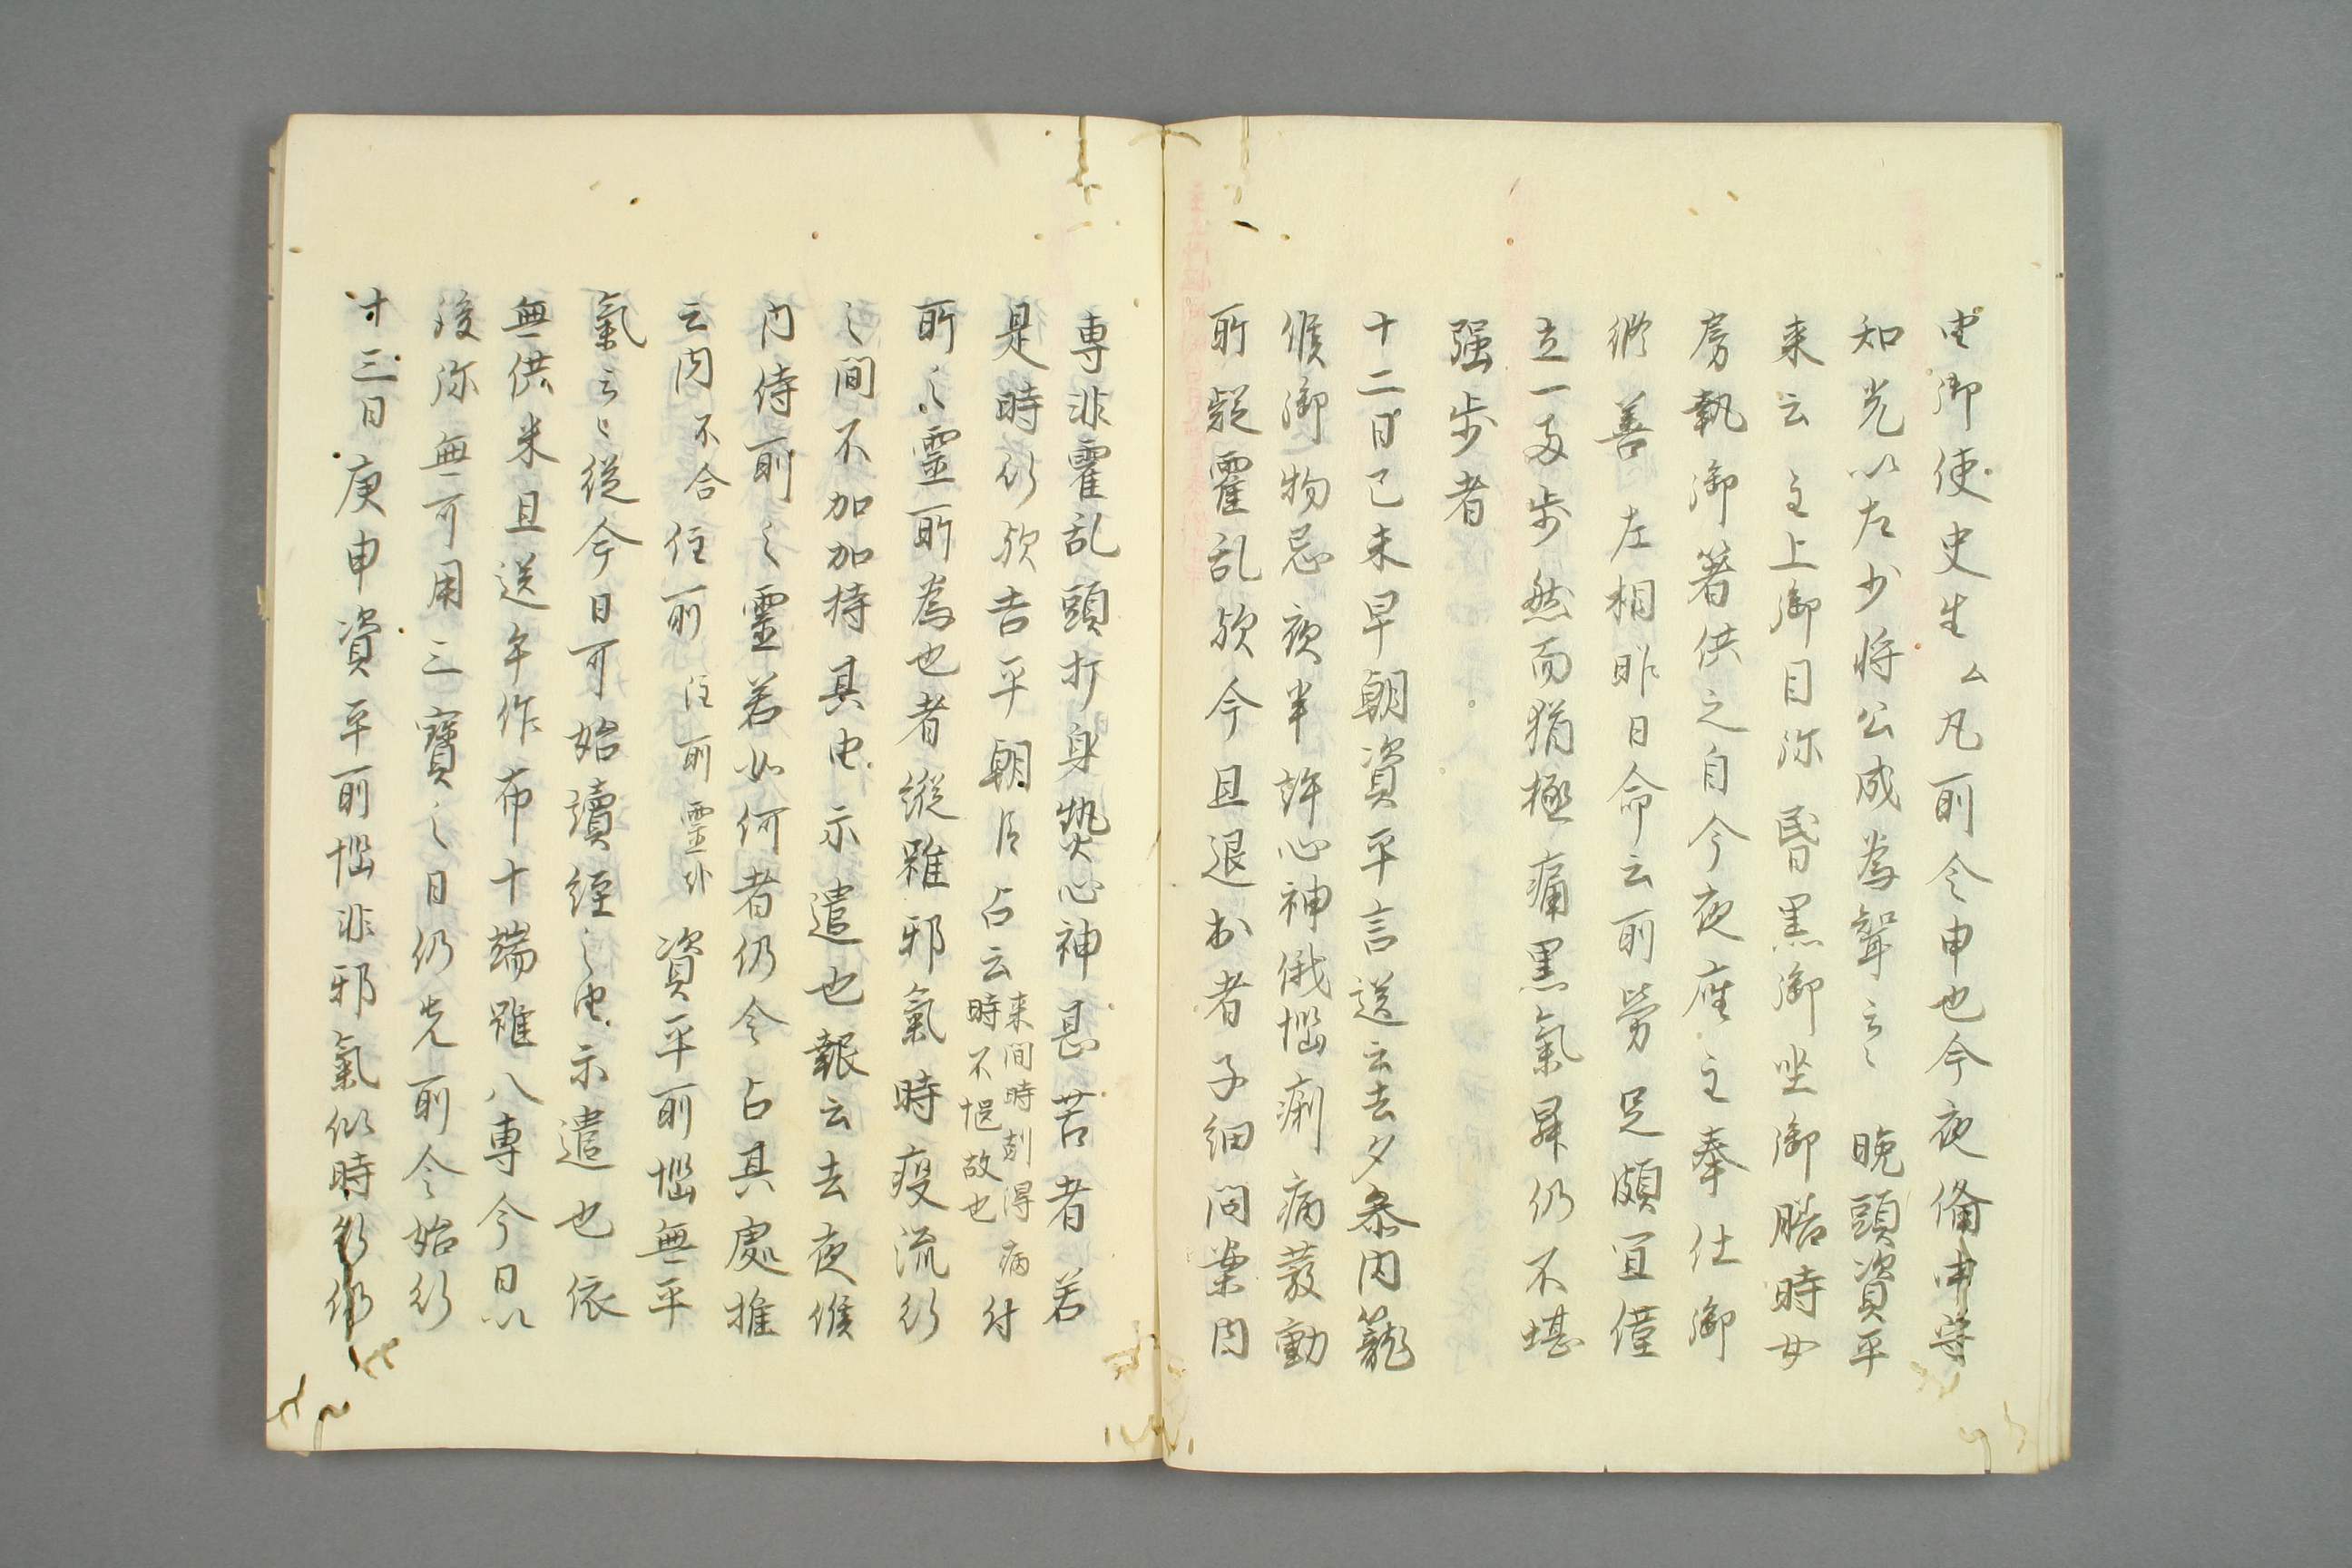 由御使史生ム凡所令申也今夜脩申守
知光以左少将公成為聟云〻晩頭資平
来云主上御目弥昏黒御坐御膳時女
房執御箸供之自今夜座主奉仕御
修善左相昨日命云所労足頗宜僅
立一両歩然而猶極痛黒気昇仍不堪
强歩者
十二日己未早朝資平言送云去夕参内籠
候御物忌夜半許心神俄悩痢病蔈動
所疑霍乱欤今且退出者子細問案内
専非霍乱頭打身熱心神甚苦者若
是時行欤吉平朝臣占云来間時剋得病
時不悒故也付
所〻霊所為也者縦雖邪氣時疫流行
之間不加加持其由示遣也報云去夜候
内侍所之霊若如何者仍令占其處推
云内不合住所住所霊外資平所悩無平
氣云〻従今日可始讀経之由示遣也依
無供米且送年作布十端雖八専今日以
後弥無可用三寳之日仍先所令始行
十三日庚申資平所悩非邪氣似時行仍